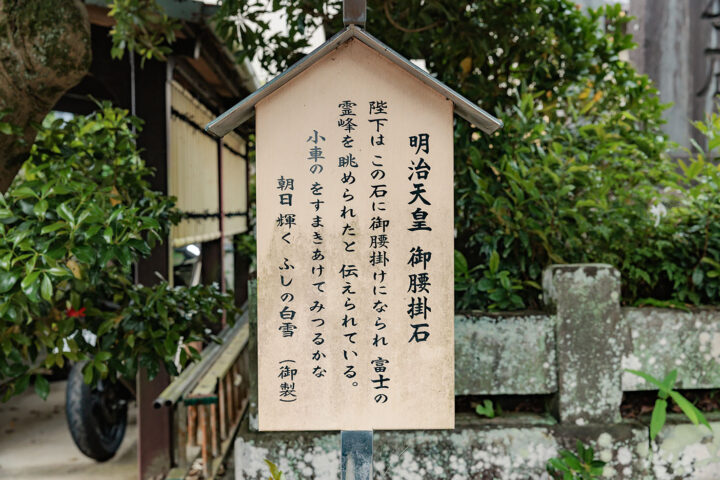 明治天皇 御腰掛石
陛下は この石に御腰掛けになられ 富士の
霊峰を 眺められたと 伝えられている。
小車の をすまきあけて みつるかな
朝日 輝く ふしの白雪 (御製)